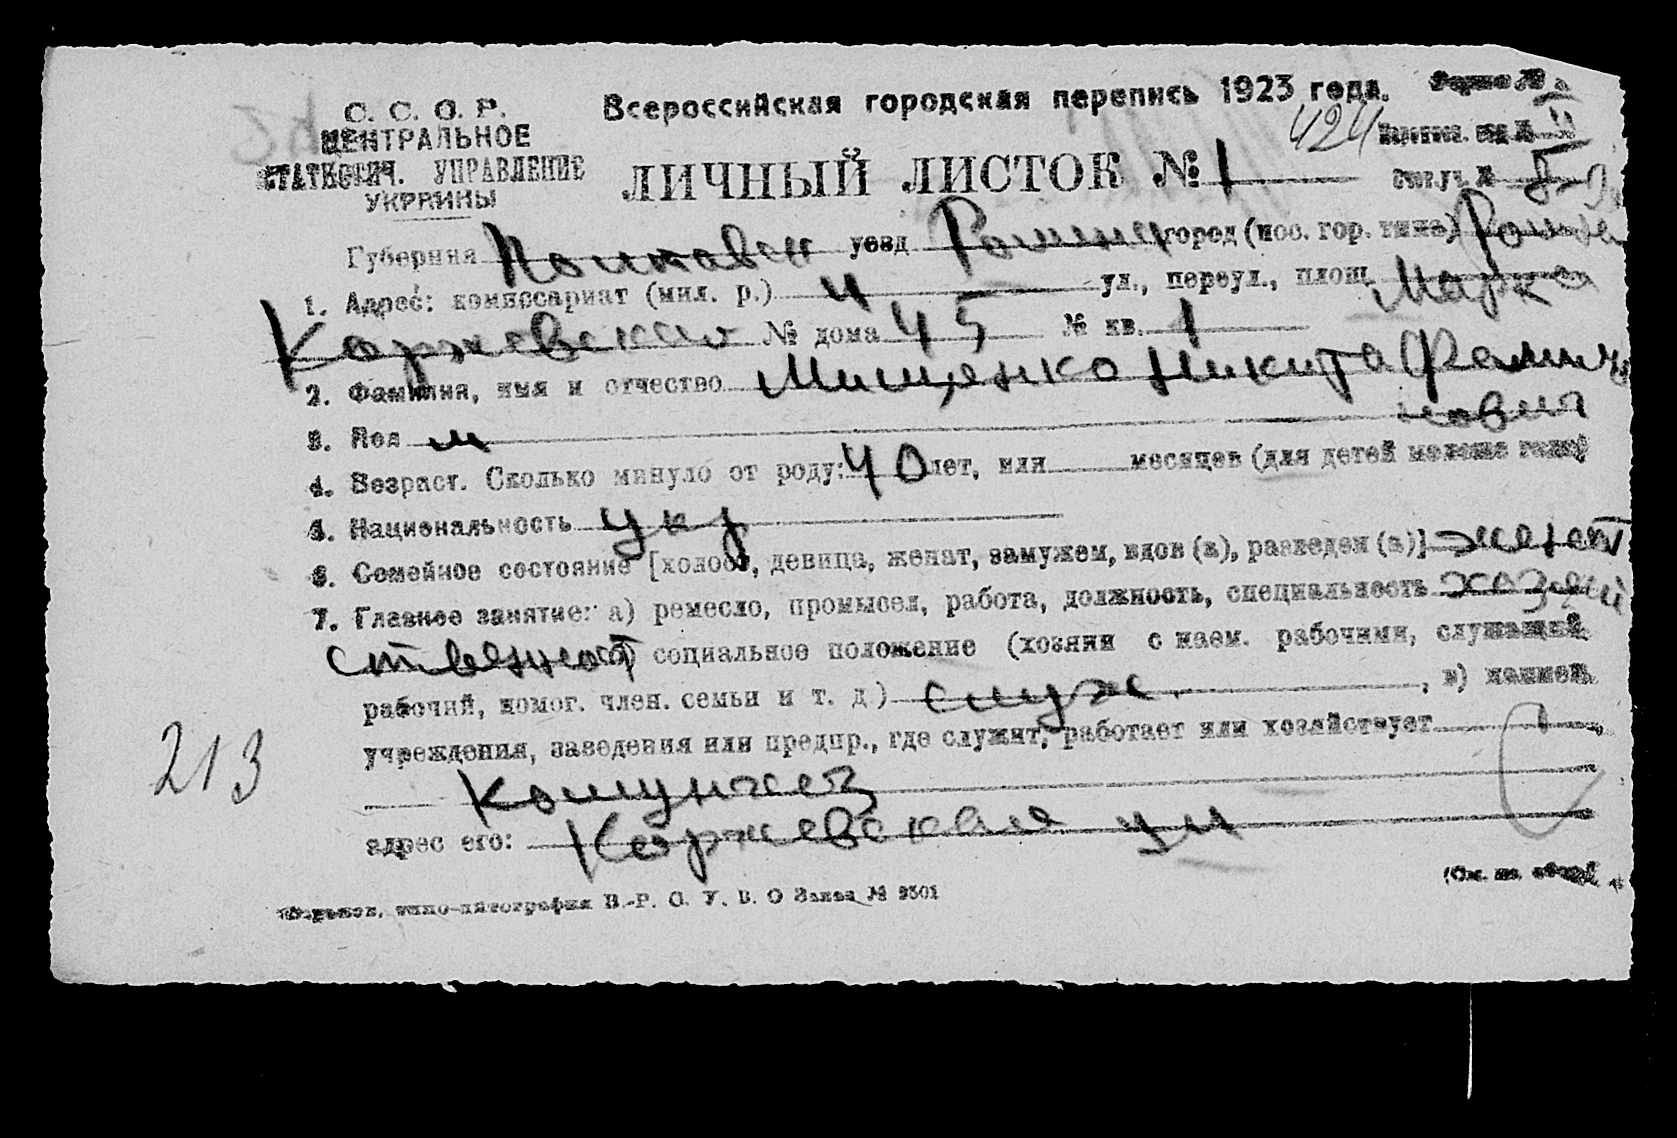 С. С. С. Р.
ЦЕНТРАЛЬНОЕ
СТАТИСТИЧ. УПРАВЛЕНИЕ
УКРАИНЫ
Всероссийская городская перепись 1923 года.
Форма №
424
ЛИЧНЫЙ ЛИСТОК № 1
Губерния Полтавск уезд Ромны город (пос. гор. типа) Ромны
1. Адрес: комиссариат (мил. р.) 4 ул., переул., площ.
Коржевская № дома 45 № кв. 1
2. Фамилия, имя и отчество Мищенко Никита Фали
мович
3. Пол м
4. Возраст. Сколько минуло от роду: 40 лет, или месяцев (для детей моложе года)
5. Национальность укр
6. Семейное состояние [холост, девица, женат, замужем, вдов (а), разведен (а)] женат
7. Главное занятие: а) ремесло, промысел, работа, должность, специальность хозяй
ственной социальное положение (хозяин с наем. рабочими, служащий,
рабочий, помог. член. семьи и т. д) служ , в) наимен.
учреждения, заведения или предпр., где служит, работает или хозяйствует
213
Комунхоз
адрес его: Коржевская ул
Харьков, типо-литография В.-Р. С. У. В. О Заказ № 9301
(См. на обор.)